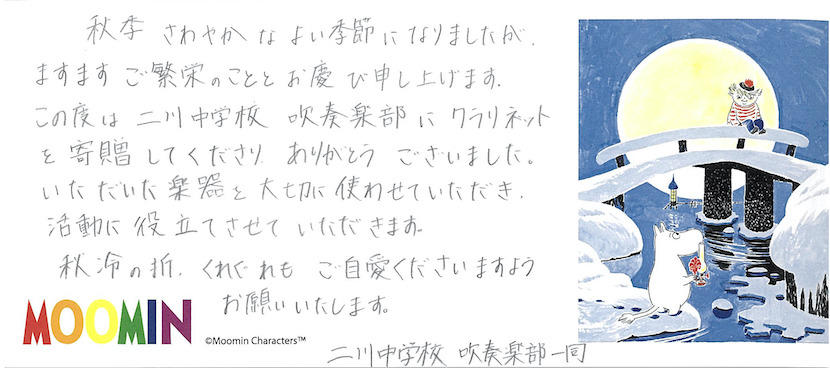 秋季 さわやかな よい季節になりましたが、
ますます ご繁栄のこととお慶び申し上げます。
この度は 二川中学校 吹奏楽部に クラリネット
を 寄贈してくださり ありがとう ございました。
いただいた楽器を大切に使わせていただき、
活動に役立てさせていただきます。
秋冷の折、くれぐれも ご自愛くださいますよう
お願いいたします。
MOOMIN
©Moomin Characters™
二川中学校 吹奏楽部一同